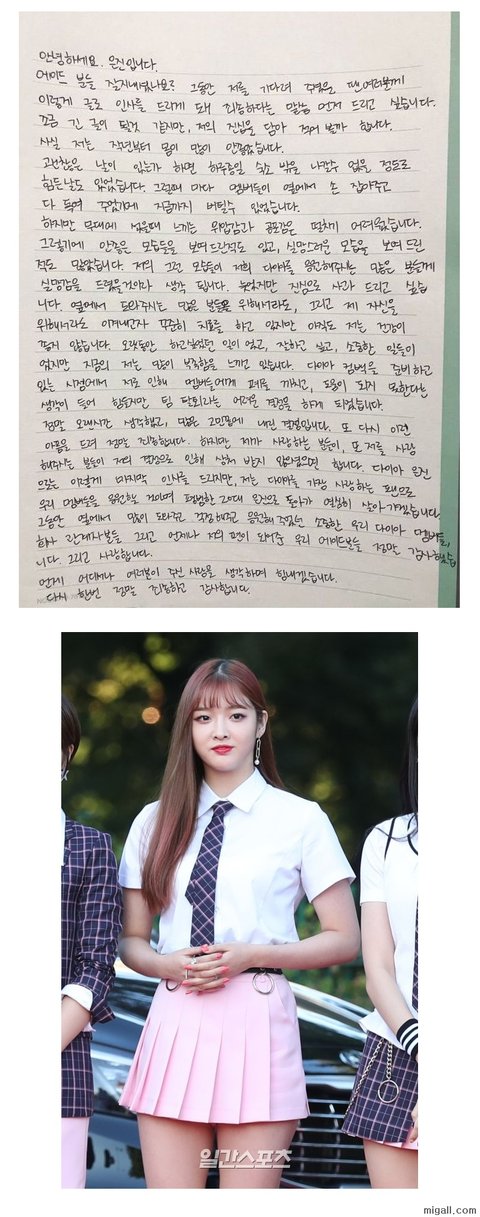 안녕하세요. 은진입니다.
에이드 분들 잘지내셨나요? 그동안 저를 기다려 주셨을 팬여러분께
이렇게 글로 인사를 드리게 돼 죄송하다는 말씀 먼저 드리고 싶습니다.
조금 긴 글이 될것 같지만, 저의 진심을 담아 적어 볼까 합니다.
사실 저는 작년부터 몸이 많이 안좋았습니다.
괜찮은 날이 있는가 하면 하루종일 숙소 밖을 나갈수 없을 정도로
힘든날도 있었습니다. 그럴때 마다 멤버들이 옆에서 손 잡아주고
다 독여 주었기에 지금까지 버틸수 있었습니다.
하지만 무대에 섰을때 느끼는 위압감과 공포감은 떨치기 어려웠습니다.
그렇기에 안좋은 모습들을 보여드린적도 있고, 실망스러운 모습을 보여 드린
적도 많았습니다. 저의 그런 모습들이 저희 다이아를 응원해주시는 많은 분들께
실망감을 드렸을것이라 생각 됩니다. 늦었지만 진심으로 사과 드리고 싶습
니다. 옆에서 도와주시는 많은 분들을 위해서라도, 그리고 제 자신을
위해서라도 이겨내고자 꾸준히 치료를 하고 있지만 아직도 저는 건강이
좋지 않습니다. 오랫동안 하고싶었던 일이 었고, 잘하고 싶고, 소중한 일들이
었지만 지금의 저는 많이 부족함을 느끼고 있습니다. 다이아 컴백을 준비하고
있는 시점에서 저로 인해 멤버들에게 폐를 끼치고, 도움이 되지 못한다는
생각이 들어 힘들지만 팀 탈퇴라는 어려운 결정을 하게 되었습니다.
정말 오랜시간 생각했고, 많은 고민끝에 내린 결정입니다. 또 다시 이런
아픔을 드려 정말 죄송합니다. 하지만 제가 사랑하는 분들이, 또 저를 사랑
해주시는 분들이 저의 결정으로 인해 상처 받지 않았으면 합니다. 다이아 은진
으로는 이렇게 마지막 인사를 드리지만, 저는 다이아를 가장 사랑하는 팬으로
우리 멤버들을 응원할 것이며 평범한 20대 은진으로 돌아가 열심히 살아가겠습니다.
그동안 옆에서 많이 도와주고 걱정해주고 응원해 주었던 소중한 우리 다이아 멤버들,
회사 관계자분들 그리고 언제나 저의 편이 되어준 우리 에이드분들 정말 감사했습
니다. 그리고 사랑합니다.
언제 어디에나 여러분이 주신 사랑을 생각하며 힘내겠습니다.
다시 한번 정말 죄송하고 감사합니다.
일간스포츠
migall.com